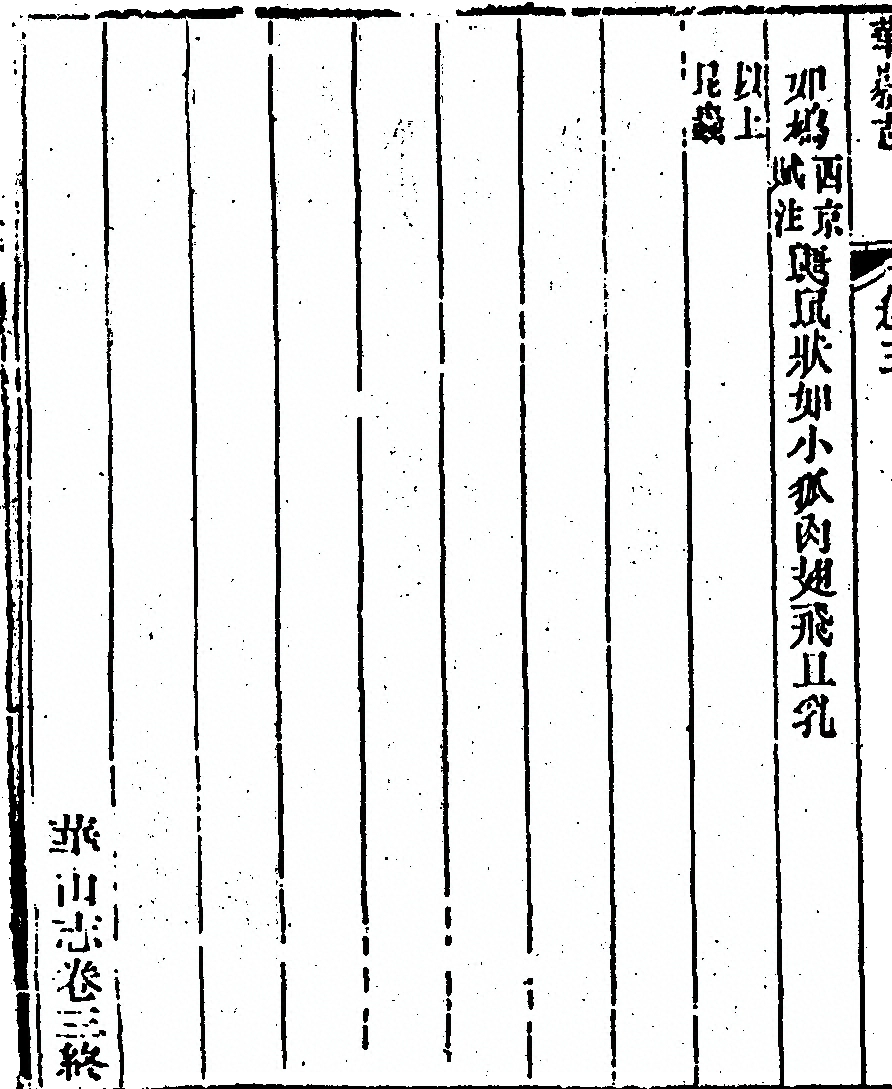 華嶽志
卷三
如鳩西京賦注鼯鼠狀如小狐肉翅飛且乳
以上
昆蟲
華山志卷三終